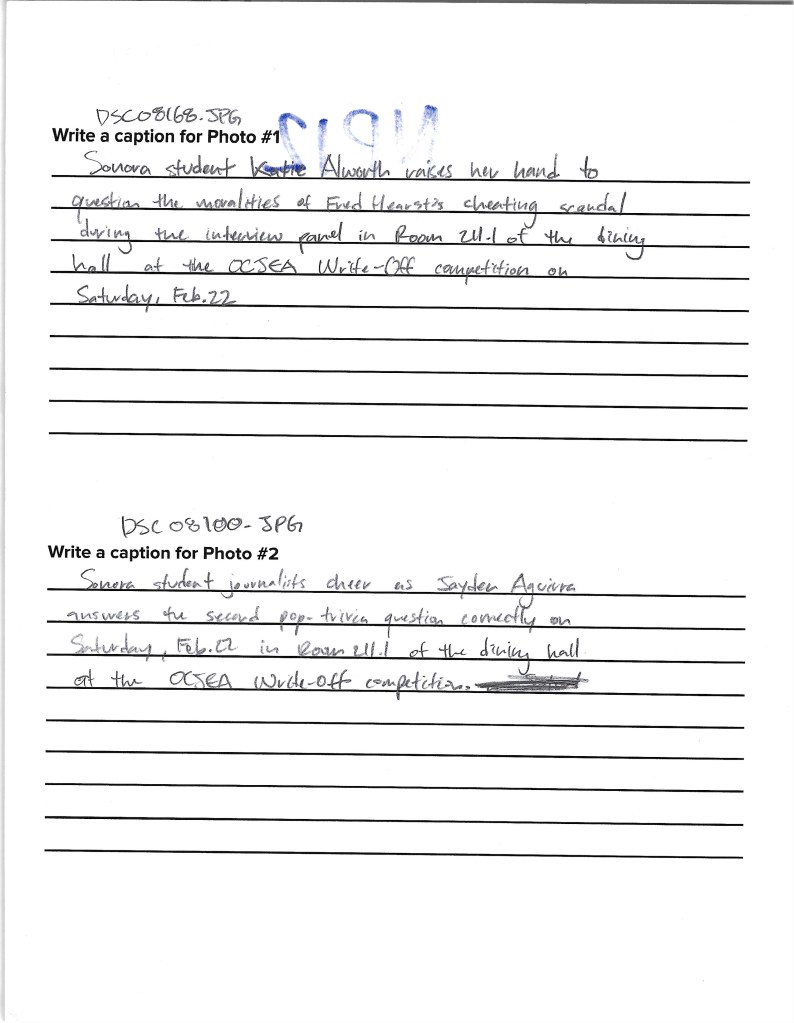 DSC08168.JPG
Write a caption for Photo #1
Sonora student Katie Alworth raises her hand to
question the moralities of Fred Hearst's cheating scandal
during the interview panel in Room 211.1 of the dining
hall at the OCJEA Write-Off competition on
Saturday, Feb. 22
DSC08100-JPG
Write a caption for Photo #2
Sonora student journalists cheer as Jayden Aguirra
answers the second pop-trivia question correctly on
Saturday, Feb. 22 in Room 211.1 of the dining hall
at the OCJEA Write-Off competition.